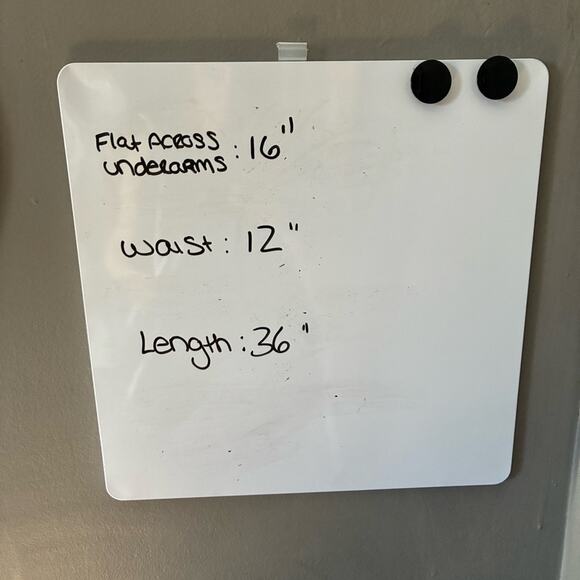 Flat Across : 16"
underarms
Waist : 12"
Length : 36"